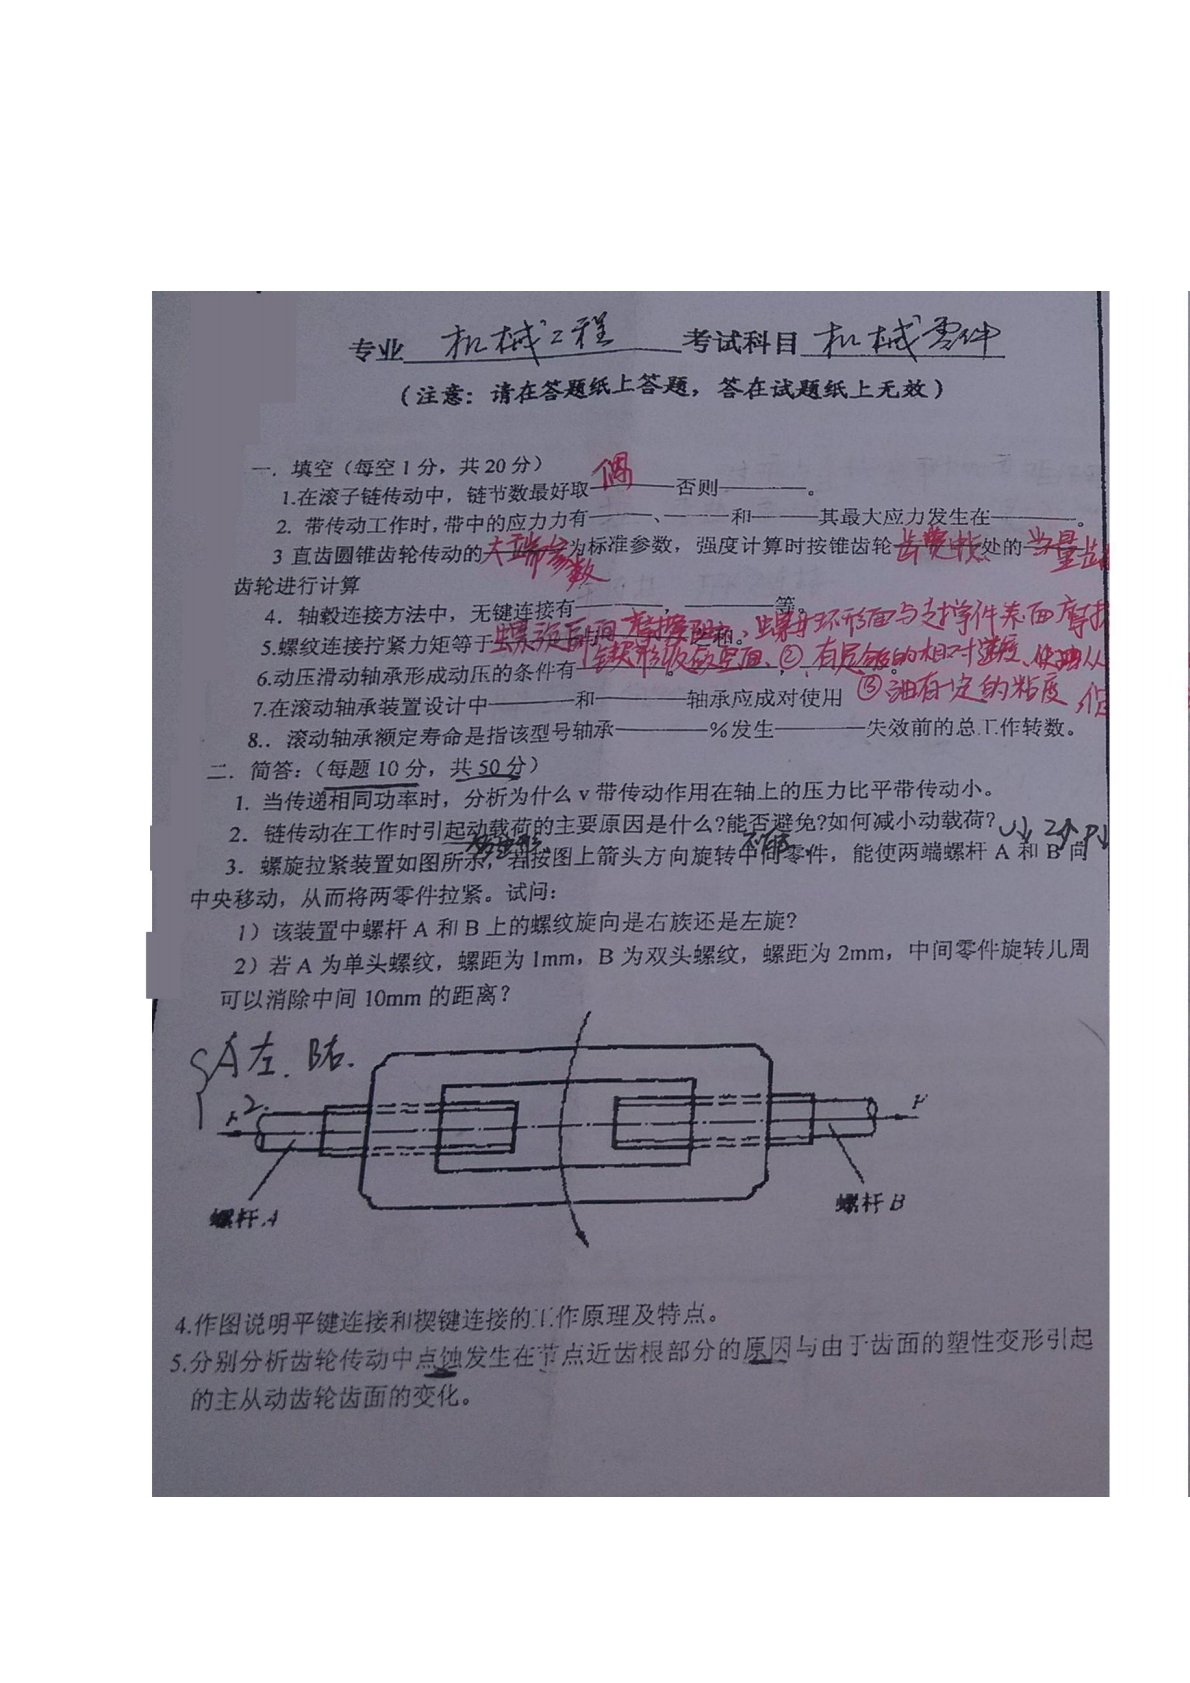 专业 机械工程 考试科目 机械零件
（注意：请在答题纸上答题，答在试题纸上无效）
一．填空（每空1分，共20分）
1.在滚子链传动中，链节数最好取 偶 否则———。
2. 带传动工作时,带中的应力力有———、———和———其最大应力发生在———。
3 直齿圆锥齿轮传动的 大端参数 为标准参数，强度计算时按锥齿轮 齿宽中点 处的 当量齿
齿轮进行计算
4．轴毂连接方法中，无键连接有———，———等。
5.螺纹连接拧紧力矩等于 螺旋副间 摩擦阻 之和。、螺母环形面与支撑件表面摩擦
6.动压滑动轴承形成动压的条件有 ② 有足够的相对速度、使 从
7.在滚动轴承装置设计中———和———轴承应成对使用 ③ 油有一定的粘度
8.．滚动轴承额定寿命是指该型号轴承———%发生———失效前的总工作转数。
二．简答：（每题10分，共50分）
1. 当传递相同功率时，分析为什么v带传动作用在轴上的压力比平带传动小。
2．链传动在工作时引起动载荷的主要原因是什么?能否避免?如何减小动载荷?
不能
3．螺旋拉紧装置如图所示，若按图上箭头方向旋转中间零件，能使两端螺杆A和B向
中央移动，从而将两零件拉紧。试问:
1）该装置中螺杆A和B上的螺纹旋向是右族还是左旋?
2）若A为单头螺纹，螺距为1mm，B为双头螺纹，螺距为2mm，中间零件旋转几周
可以消除中间10mm的距离?
A左．B右.
2.
F
螺杆A
螺杆B
4.作图说明平键连接和楔键连接的工作原理及特点。
5.分别分析齿轮传动中点蚀发生在节点近齿根部分的原因与由于齿面的塑性变形引起
的主从动齿轮齿面的变化。